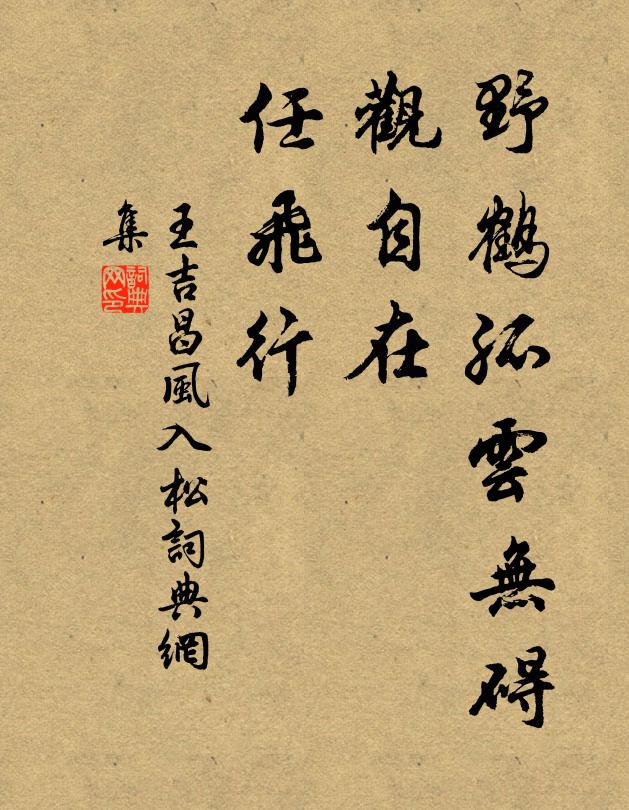 野鶴孤雲無碍
觀自在
任飛行
王吉昌風入松詞典網
集
詞典
网印